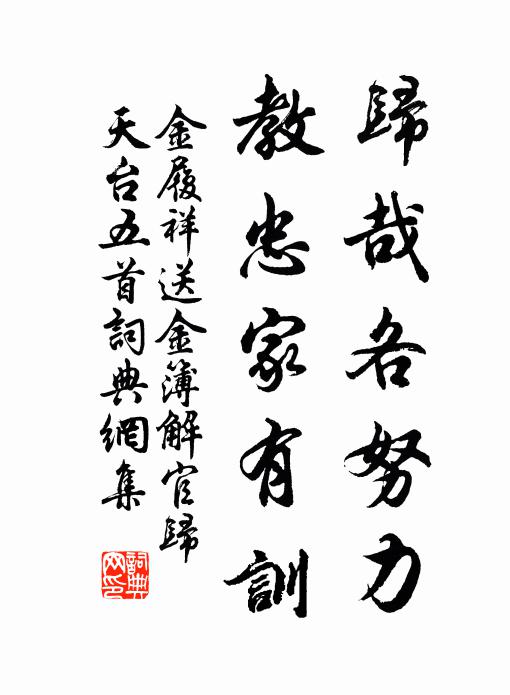 歸哉各努力
教忠家有訓
金履祥送金簿解官歸
天台五首詞典網集
詞典網印